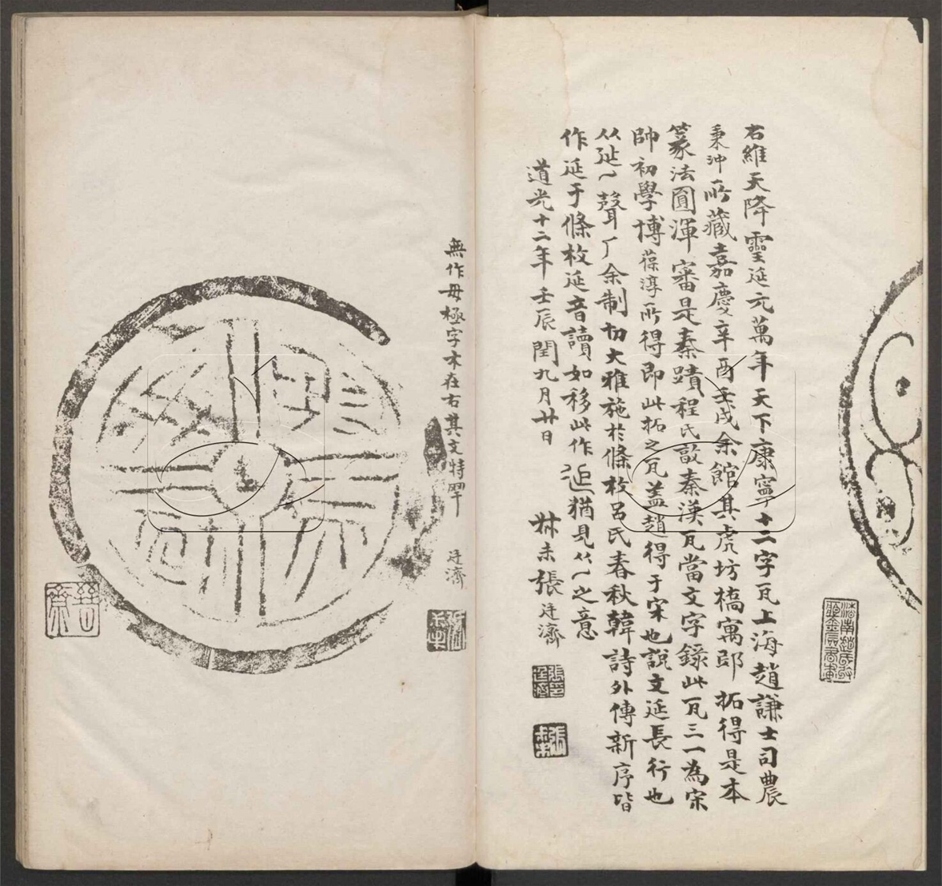 右維天降靈延元萬年天下康寧十二字瓦上海趙謙士司農
秉沖所藏嘉慶辛酉壬戌余館其虎坊橋寓邸拓得是本
篆法圓渾審是秦蹟程氏敦秦漢瓦當文字錄此瓦三一為宋
帥初學博葆淳所得即此拓之瓦蓋趙得于宋也說文延長行也
从㢟丿聲厂余制切大雅施於條枚呂氏春秋韓詩外傳新序皆
作延于條枚延音讀如移此作𨒂猶見从丿之意
道光十二年壬辰閏九月廿日 叔未張廷濟
無作毋極字木在右其文特㽔 廷濟